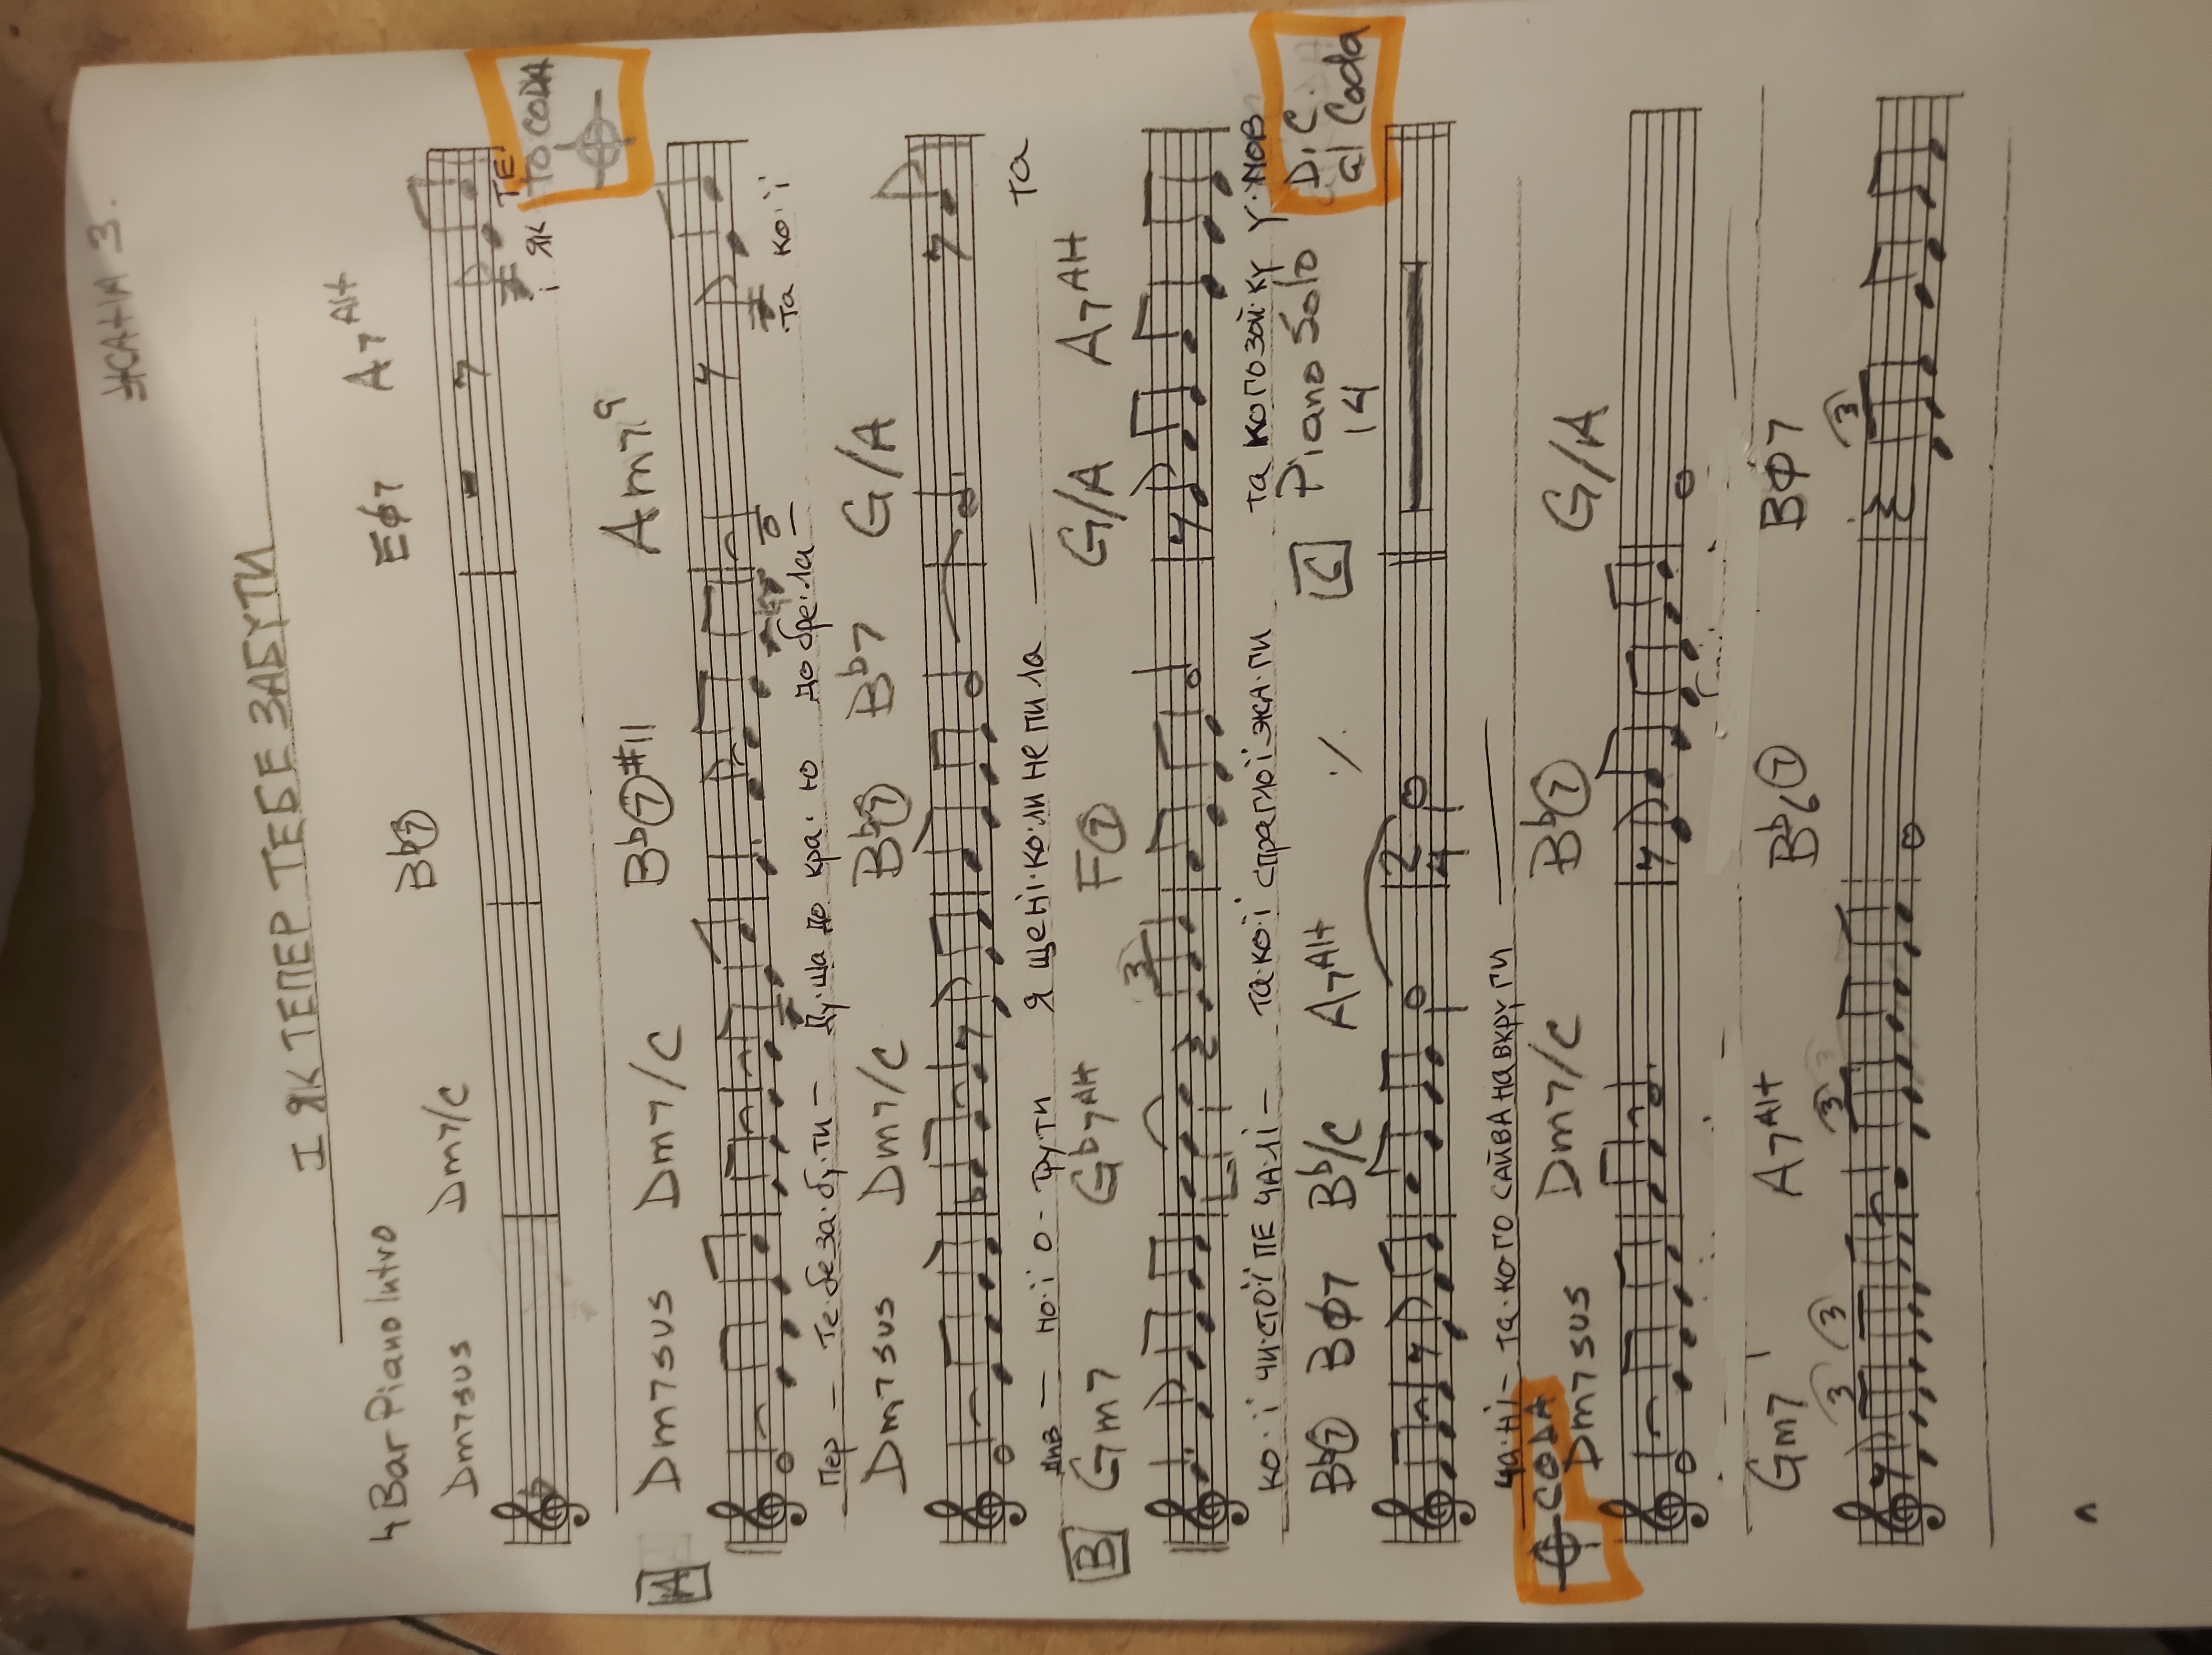 ЖАННА З.
І ЯК ТЕПЕР ТЕБЕ ЗАБУТИ
4 Bar Piano Intro
Dm7sus Dm7/C Bb⑦ Eφ7 A7Alt
і як ТЕ
TO CODA
A Dm7sus Dm7/C Bb⑦#11 Am7,9
пер – те·бе за·бу·ти – Ду·ша до кра·ю до бре·ла – та ко·ї
Dm7sus Dm7/C Bb⑦ Bb7 G/A
див – но·ї о - тру·ти я ще ні·ко·ли не пи ла — та
B Gm7 Gb7Alt F⑦ G/A A7Alt
3
ко·ї чи·стої ПЕ ЧАЛІ – та·ко·ї спраглої жа·ги та кого зой·ку у·мов
Bb⑦ Bφ7 Bb/C A7Alt ٪ C Piano Solo D.C. al Coda
14
2/4
ча·ні – та·ко·го САЙВА НАВКРУГИ —
CODA
Dm7sus Dm7/C Bb⑦ G/A
Gm7 A7Alt Bb6⑦ Bφ7
3 3 3 3